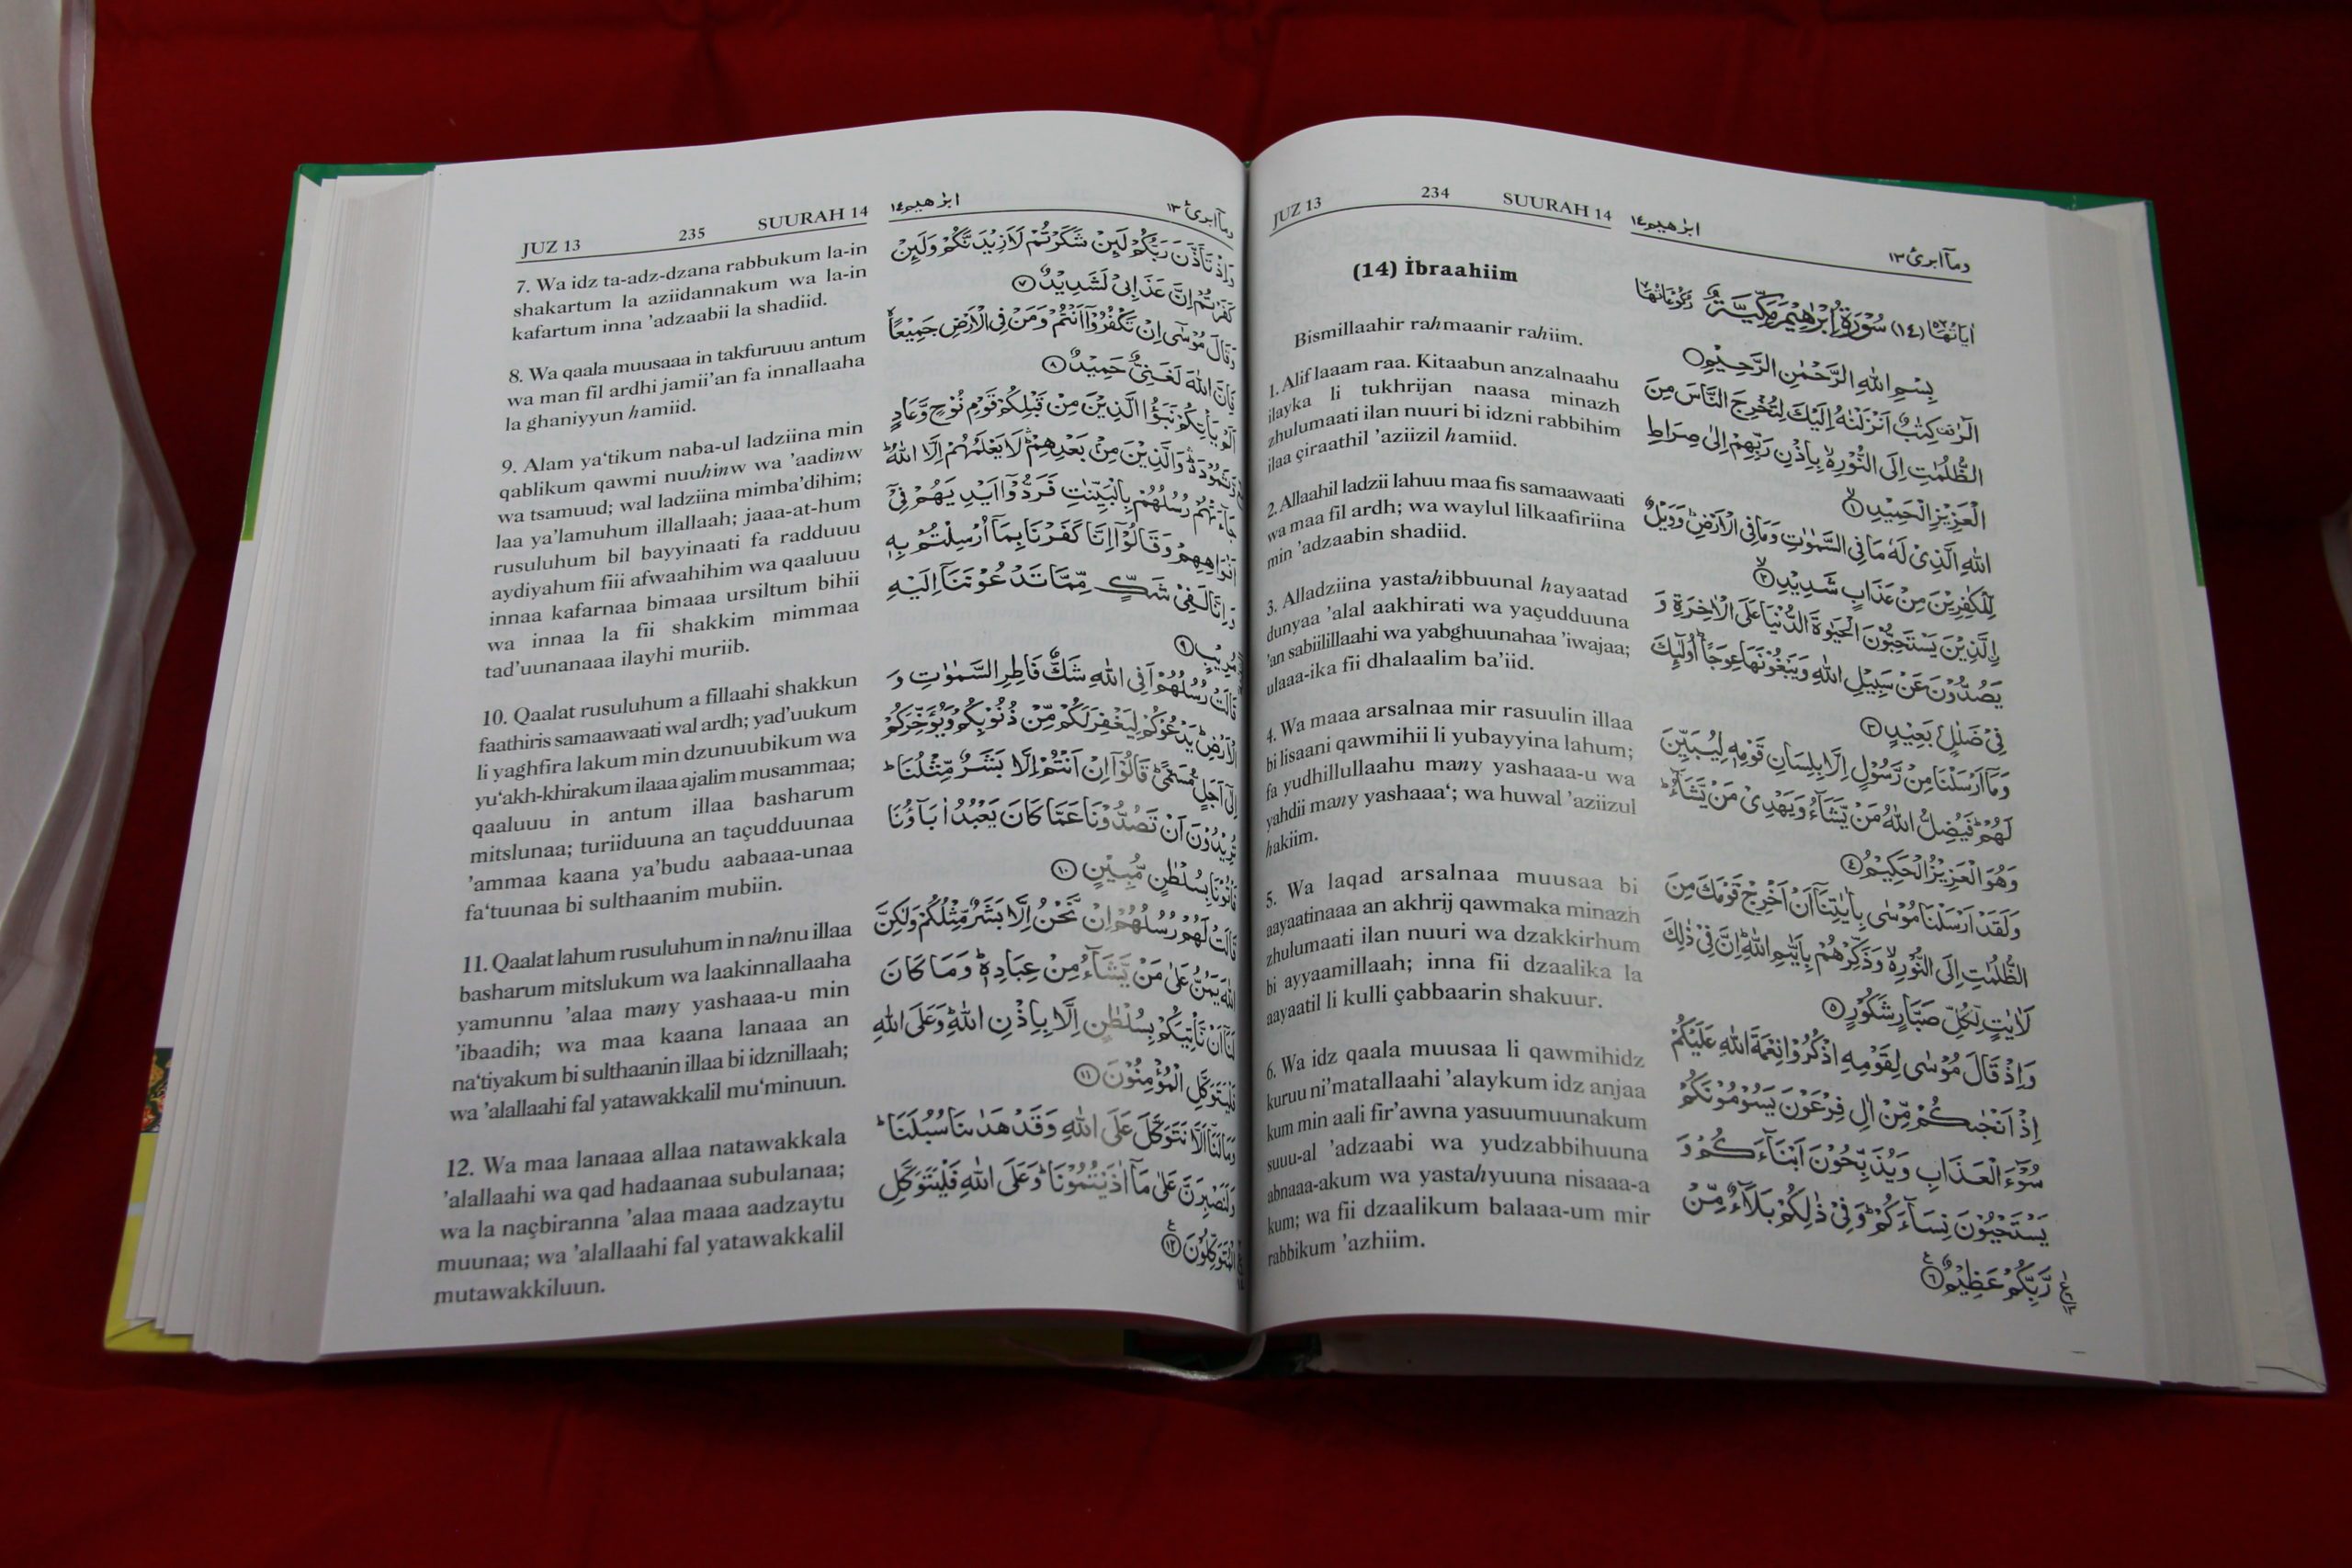 JUZ 13 234 SUURAH 14 ابرٰهيم١٤ ومآابرئ١٣
(14) İbraahiim
Bismillaahir rahmaanir rahiim.
1. Alif laaam raa. Kitaabun anzalnaahu
ilayka li tukhrijan naasa minazh
zhulumaati ilan nuuri bi idzni rabbihim
ilaa çiraathil ’aziizil hamiid.
2. Allaahil ladzii lahuu maa fis samaawaati
wa maa fil ardh; wa waylul lilkaafiriina
min ’adzaabin shadiid.
3. Alladziina yastahibbuunal hayaatad
dunyaa ’alal aakhirati wa yaçudduuna
’an sabiilillaahi wa yabghuunahaa ’iwajaa;
ulaaa-ika fii dhalaalim ba’iid.
4. Wa maaa arsalnaa mir rasuulin illaa
bi lisaani qawmihii li yubayyina lahum;
fa yudhillullaahu many yashaaa-u wa
yahdii many yashaaa‘; wa huwal ’aziizul
hakiim.
5. Wa laqad arsalnaa muusaa bi
aayaatinaaa an akhrij qawmaka minazh
zhulumaati ilan nuuri wa dzakkirhum
bi ayyaamillaah; inna fii dzaalika la
aayaatil li kulli çabbaarin shakuur.
6. Wa idz qaala muusaa li qawmihidz
kuruu ni’matallaahi ’alaykum idz anjaa
kum min aali fir’awna yasuumuunakum
suuu-al ’adzaabi wa yudzabbihuuna
abnaaa-akum wa yastahyuuna nisaaa-a
kum; wa fii dzaalikum balaaa-um mir
rabbikum ’azhiim.
اٰيَاتُهَا ٥٢ (١٤) سُوْرَةُ اِبْرٰهِيْمَ مَكِّيَّةٌ رُكُوْعَاتُهَا ٧
بِسْمِ اللّٰهِ الرَّحْمٰنِ الرَّحِيْمِ
الٓرٰ ۗ كِتٰبٌ اَنْزَلْنٰهُ اِلَيْكَ لِتُخْرِجَ النَّاسَ مِنَ
الظُّلُمٰتِ اِلَى النُّوْرِ ۙ بِاِذْنِ رَبِّهِمْ اِلٰى صِرَاطِ
الْعَزِيْزِ الْحَمِيْدِ ۙ ١
اللّٰهِ الَّذِيْ لَهٗ مَا فِى السَّمٰوٰتِ وَمَا فِى الْاَرْضِ ؕ وَوَيْلٌ
لِّلْكٰفِرِيْنَ مِنْ عَذَابٍ شَدِيْدٍ ۙ ٢
اِلَّذِيْنَ يَسْتَحِبُّوْنَ الْحَيٰوةَ الدُّنْيَا عَلَى الْاٰخِرَةِ وَ
يَصُدُّوْنَ عَنْ سَبِيْلِ اللّٰهِ وَيَبْغُوْنَهَا عِوَجًا ؕ اُولٰٓئِكَ
فِيْ ضَلٰلٍ بَعِيْدٍ ٣
وَمَآ اَرْسَلْنَا مِنْ رَّسُوْلٍ اِلَّا بِلِسَانِ قَوْمِهٖ لِيُبَيِّنَ
لَهُمْ ؕ فَيُضِلُّ اللّٰهُ مَنْ يَّشَآءُ وَيَهْدِيْ مَنْ يَّشَآءُ ؕ
وَهُوَ الْعَزِيْزُ الْحَكِيْمُ ٤
وَلَقَدْ اَرْسَلْنَا مُوْسٰى بِاٰيٰتِنَآ اَنْ اَخْرِجْ قَوْمَكَ مِنَ
الظُّلُمٰتِ اِلَى النُّوْرِ ۙ وَذَكِّرْهُمْ بِاَيّٰىمِ اللّٰهِ ؕ اِنَّ فِيْ ذٰلِكَ
لَاٰيٰتٍ لِّكُلِّ صَبَّارٍ شَكُوْرٍ ٥
وَاِذْ قَالَ مُوْسٰى لِقَوْمِهِ اذْكُرُوْا نِعْمَةَ اللّٰهِ عَلَيْكُمْ
اِذْ اَنْجٰىكُمْ مِّنْ اٰلِ فِرْعَوْنَ يَسُوْمُوْنَكُمْ
سُوْٓءَ الْعَذَابِ وَيُذَبِّحُوْنَ اَبْنَآءَكُمْ وَ
يَسْتَحْيُوْنَ نِسَآءَكُمْ ؕ وَفِيْ ذٰلِكُمْ بَلَآءٌ مِّنْ
رَّبِّكُمْ عَظِيْمٌ ٦
JUZ 13 235 SUURAH 14 ابرٰهيم١٤ ومآابرئ١٣
7. Wa idz ta-adz-dzana rabbukum la-in
shakartum la aziidannakum wa la-in
kafartum inna ’adzaabii la shadiid.
8. Wa qaala muusaaa in takfuruuu antum
wa man fil ardhi jamii’an fa innallaaha
la ghaniyyun hamiid.
9. Alam ya‘tikum naba-ul ladziina min
qablikum qawmi nuuhinw wa ’aadinw
wa tsamuud; wal ladziina mimba’dihim;
laa ya’lamuhum illallaah; jaaa-at-hum
rusuluhum bil bayyinaati fa radduuu
aydiyahum fiii afwaahihim wa qaaluuu
innaa kafarnaa bimaaa ursiltum bihii
wa innaa la fii shakkim mimmaa
tad’uunanaaa ilayhi muriib.
10. Qaalat rusuluhum a fillaahi shakkun
faathiris samaawaati wal ardh; yad’uukum
li yaghfira lakum min dzunuubikum wa
yu‘akh-khirakum ilaaa ajalim musammaa;
qaaluuu in antum illaa basharum
mitslunaa; turiiduuna an taçudduunaa
’ammaa kaana ya’budu aabaaa-unaa
fa‘tuunaa bi sulthaanim mubiin.
11. Qaalat lahum rusuluhum in nahnu illaa
basharum mitslukum wa laakinnallaaha
yamunnu ’alaa many yashaaa-u min
’ibaadih; wa maa kaana lanaaa an
na‘tiyakum bi sulthaanin illaa bi idznillaah;
wa ’alallaahi fal yatawakkalil mu‘minuun.
12. Wa maa lanaaa allaa natawakkala
’alallaahi wa qad hadaanaa subulanaa;
wa la naçbiranna ’alaa maaa aadzaytu
muunaa; wa ’alallaahi fal yatawakkalil
mutawakkiluun.
وَاِذْ تَاَذَّنَ رَبُّكُمْ لَئِنْ شَكَرْتُمْ لَاَزِيْدَنَّكُمْ وَلَئِنْ
كَفَرْتُمْ اِنَّ عَذَابِيْ لَشَدِيْدٌ ٧
وَقَالَ مُوْسٰٓى اِنْ تَكْفُرُوْٓا اَنْتُمْ وَمَنْ فِى الْاَرْضِ جَمِيْعًا ۙ
فَاِنَّ اللّٰهَ لَغَنِيٌّ حَمِيْدٌ ٨
اَلَمْ يَاْتِكُمْ نَبَؤُا الَّذِيْنَ مِنْ قَبْلِكُمْ قَوْمِ نُوْحٍ وَّعَادٍ
وَّثَمُوْدَ ۛ وَالَّذِيْنَ مِنْۢ بَعْدِهِمْ ۛ لَا يَعْلَمُهُمْ اِلَّا اللّٰهُ ؕ
جَآءَتْهُمْ رُسُلُهُمْ بِالْبَيِّنٰتِ فَرَدُّوْٓا اَيْدِيَهُمْ فِيْٓ
اَفْوَاهِهِمْ وَقَالُوْٓا اِنَّا كَفَرْنَا بِمَآ اُرْسِلْتُمْ بِهٖ
وَاِنَّا لَفِيْ شَكٍّ مِّمَّا تَدْعُوْنَنَآ اِلَيْهِ
مُرِيْبٍ ٩
قَالَتْ رُسُلُهُمْ اَفِى اللّٰهِ شَكٌّ فَاطِرِ السَّمٰوٰتِ وَ
الْاَرْضِ ؕ يَدْعُوْكُمْ لِيَغْفِرَ لَكُمْ مِّنْ ذُنُوْبِكُمْ وَيُؤَخِّرَكُمْ
اِلٰٓى اَجَلٍ مُّسَمًّى ؕ قَالُوْٓا اِنْ اَنْتُمْ اِلَّا بَشَرٌ مِّثْلُنَا ؕ
تُرِيْدُوْنَ اَنْ تَصُدُّوْنَا عَمَّا كَانَ يَعْبُدُ اٰبَآؤُنَا
فَاْتُوْنَا بِسُلْطٰنٍ مُّبِيْنٍ ١٠
قَالَتْ لَهُمْ رُسُلُهُمْ اِنْ نَّحْنُ اِلَّا بَشَرٌ مِّثْلُكُمْ وَلٰكِنَّ
اللّٰهَ يَمُنُّ عَلٰى مَنْ يَّشَآءُ مِنْ عِبَادِهٖ ؕ وَمَا كَانَ
لَنَآ اَنْ نَّاْتِيَكُمْ بِسُلْطٰنٍ اِلَّا بِاِذْنِ اللّٰهِ ؕ وَعَلَى اللّٰهِ
فَلْيَتَوَكَّلِ الْمُؤْمِنُوْنَ ١١
وَمَا لَنَآ اَلَّا نَتَوَكَّلَ عَلَى اللّٰهِ وَقَدْ هَدٰىنَا سُبُلَنَا ؕ
وَلَنَصْبِرَنَّ عَلٰى مَآ اٰذَيْتُمُوْنَا ؕ وَعَلَى اللّٰهِ فَلْيَتَوَكَّلِ
الْمُتَوَكِّلُوْنَ ١٢